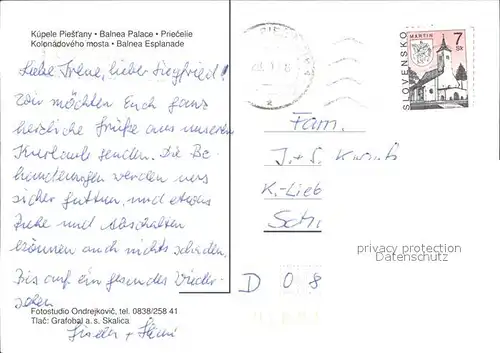 Kúpele Piešťany • Balnea Palace • Priečelie
Kolonádového mosta • Balnea Esplanade
Liebe Irene, lieber Siegfried!
Wir möchten Euch ganz
herzliche Grüße aus unserem
Kurlaub senden. Die Be-
handlungen werden uns
sicher guttun, und etwas
Ruhe und Abschalten
können auch nichts schaden.
Bis auf ein gesundes Wieder-
sehen
Fotostudio Ondrejkovič, tel. 0838/258 41
Tlač: Grafobal a. s. Skalica
+
MARTIN
7
SK
SLOVENSKO
Fam.
J. + S.
K.-Lieb
Sch.
D 08
privacy protection
Datenschutz